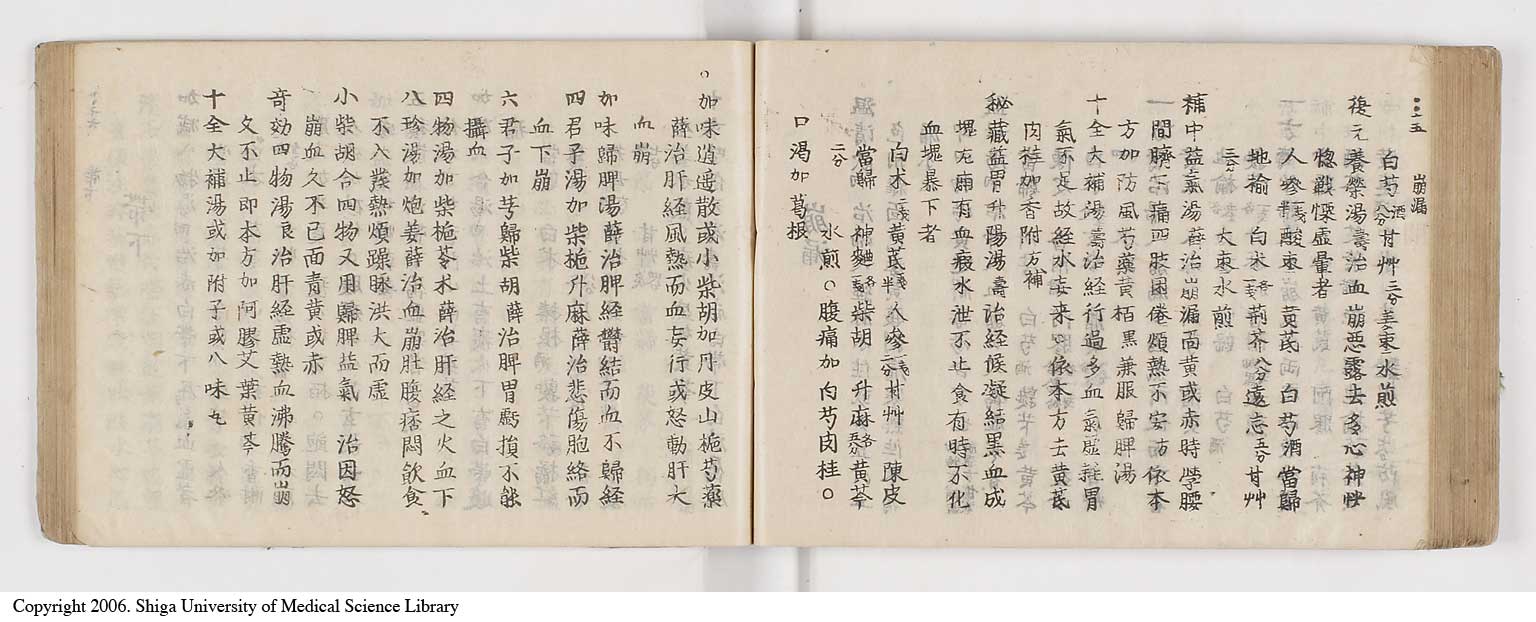 崩漏
白芍酒八分甘艸三分姜棗水煎
復元養榮湯濤治血崩惡露去多心神恍
惚戰慄虛暈者
人參二戔酸棗黄芪白芍酒當歸
地榆一戔白朮一戔荊芥八分遠志五分甘艸
三分 大棗水煎
補中益氣湯薛治崩漏面黄或赤時學腰
間臍下痛四肢困倦煩熱不安防依本
方加防風芍藥黄栢黒兼服歸脾湯
十全大補湯濤治経行過多血氣虛耗胃
氣不足故経水妄来○依本方去黄芪
肉桂加香附方補
秘藏益胃升陽湯濤治経候凝結黒血成
塊左廂有血瘕水泄不止食有時不化
血塊暴下者
白朮二戔黄芪 人參一戔甘艸二分陳皮
當歸 神麯 柴胡 升麻 黄芩
二分 水煎○腹痛加白芍肉桂○
口渇加葛根
○加味逍遥散或小柴胡加丹皮山梔芍藥
薛治肝経風熱而血妄行或怒動肝火
血崩
加味歸脾湯薛治脾経鬱結而血不歸経
四君子湯加柴梔升麻薛治悲傷胞絡而
血下崩
六君子加芎歸柴胡薛治脾胃虧損不能
攝血
四物湯加柴梔苓朮薛治肝経之火血下
八珍湯加炮姜薛治血崩肚腹痞悶飲食
不入發熱煩躁脉洪大而虛
小柴胡合四物又用歸脾益氣 治因怒
崩血久不已面青黄或赤
奇効四物湯良治肝経虛熱血沸騰而崩
久不止即本方加阿膠艾葉黄芩
十全大補湯或如附子或八味丸
Copyright 2006. Shiga University of Medical Science Library